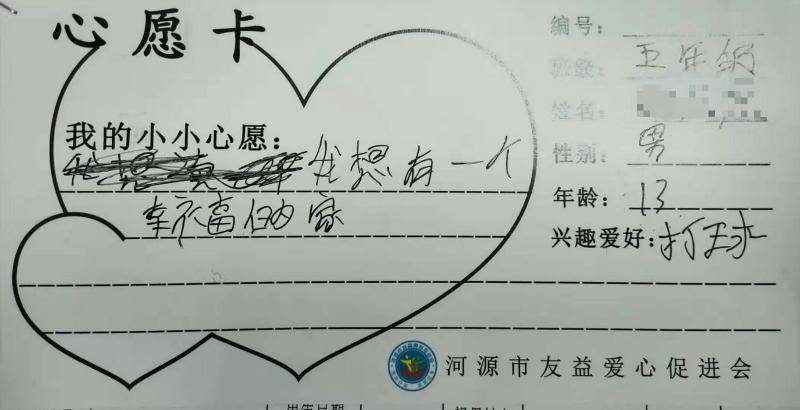 心愿卡
编号：
班级：五年级
姓名：
我的小小心愿：
性别：男
我想有一个
年龄：13
幸福的家
兴趣爱好：打球
河源市友益爱心促进会
出生日期